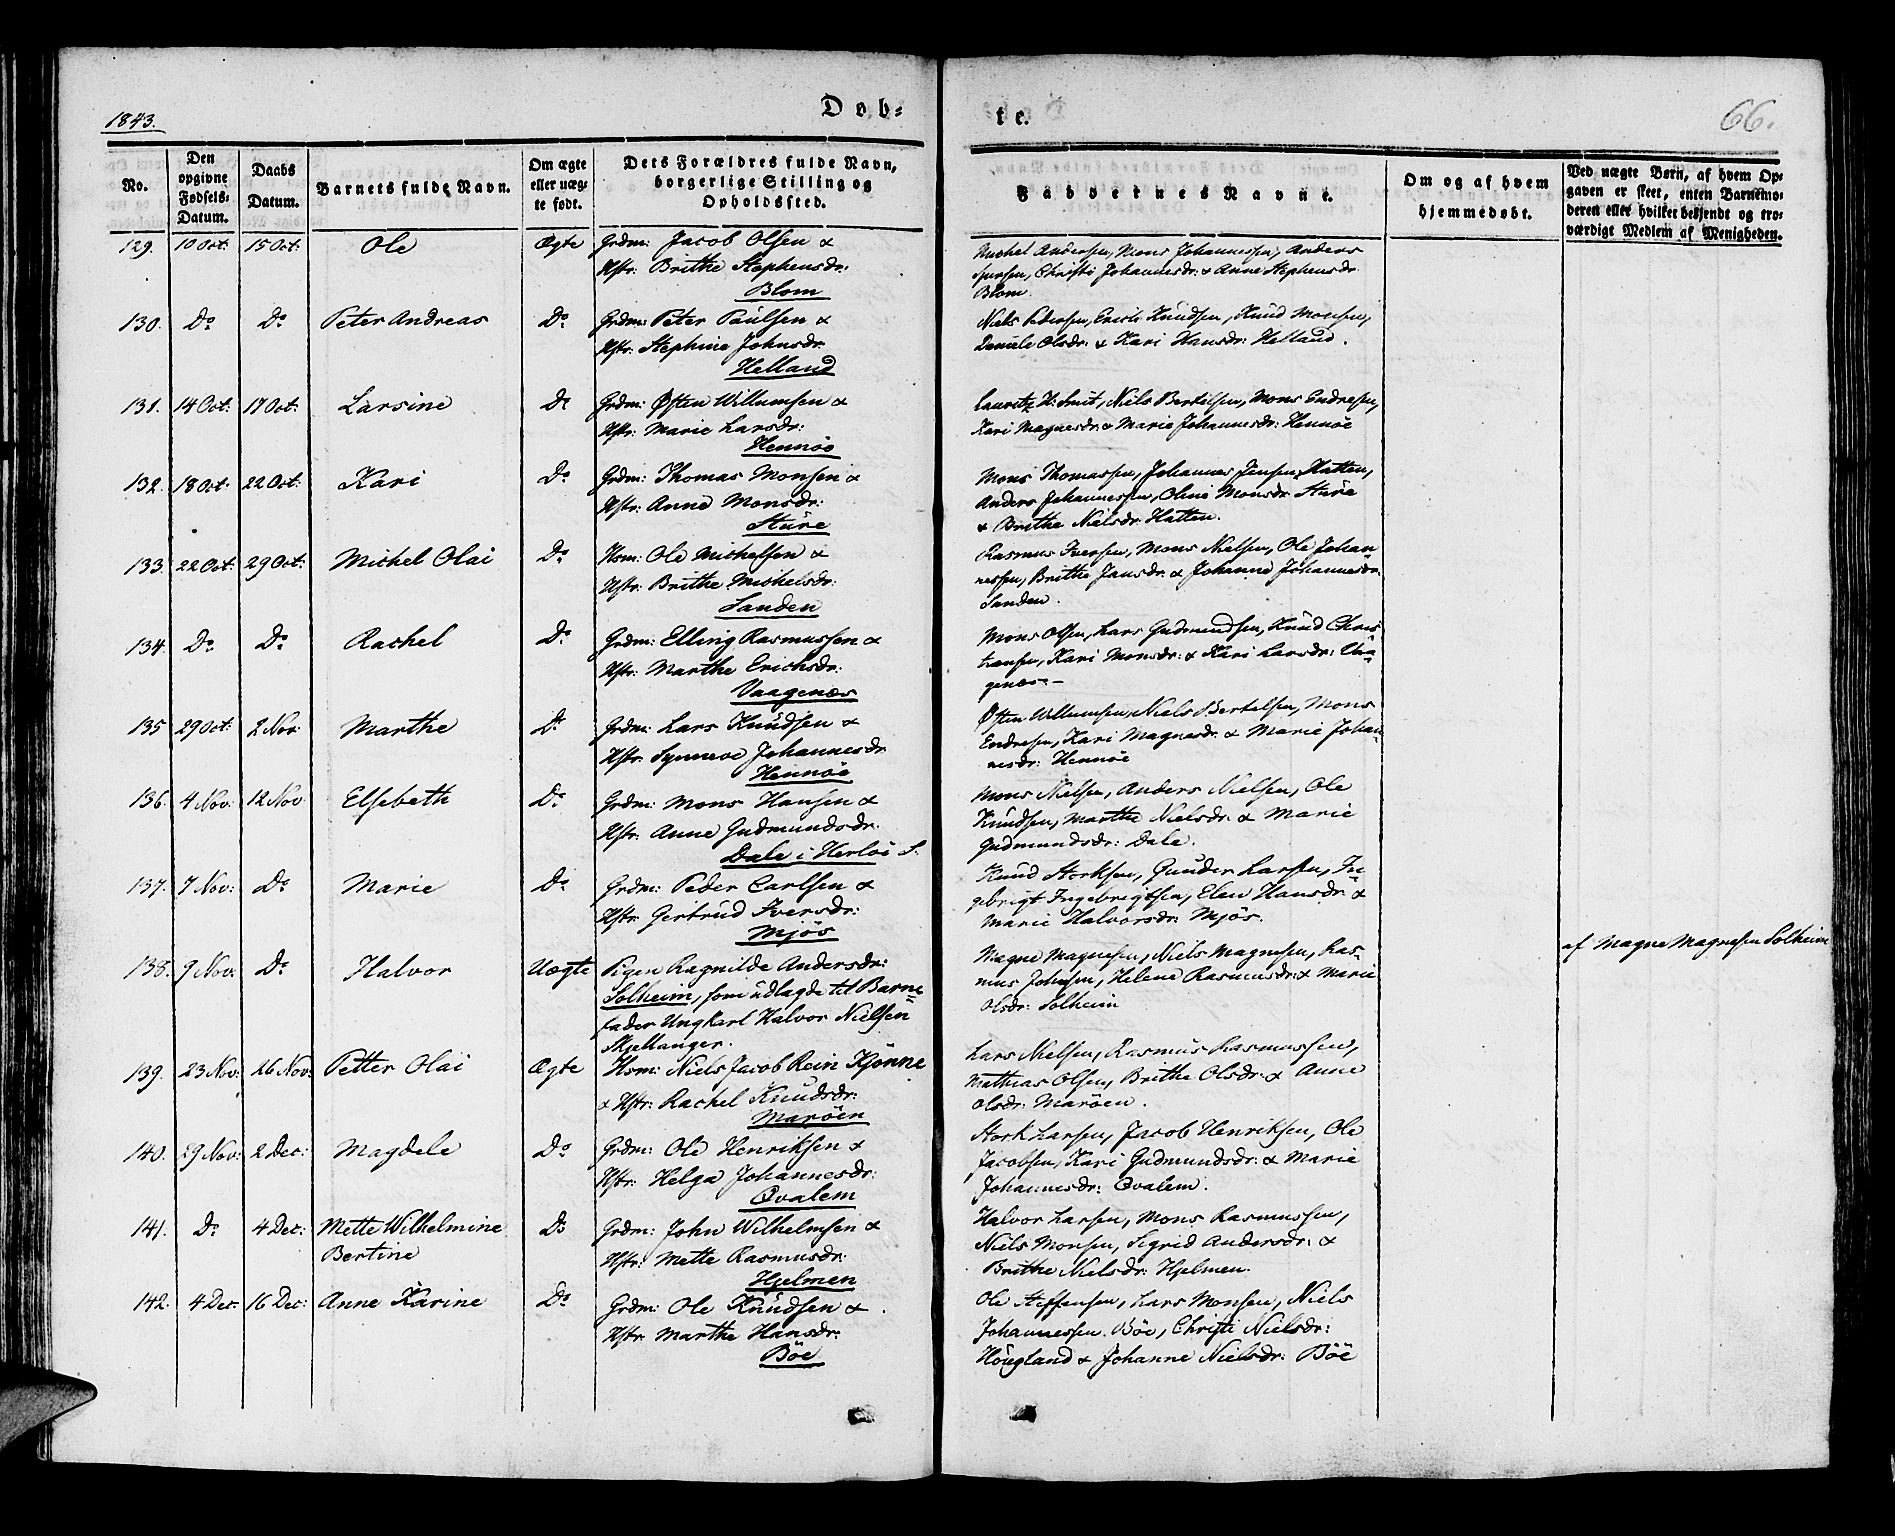 1843.
Døb-
te.
66.
No.
Den opgivne Fødsels-Datum.
Daabs Datum.
Barnets fulde Navn.
Om ægte eller uæg-te født.
Dets Forældres fulde Navn, borgerlige Stilling og Opholdssted.
Faddernes Navne.
Om og af hvem hjemmedøbt.
Ved uægte Børn, af hvem Op-
gaven er skeet, enten Barnemo-
deren eller hvilket bekjendt og tro-
værdigt Medlem af Menigheden.
129. 10 Oct: 15 Oct: Ole Ægte Grdm: Jacob Olsen &
Hstr: Brithe Stephensdr:
Blom
Michel Andersen, Mons Johannessen, Anders
Iversen, Christi Johannesdr: & Anne Stephensdr
Blom.
130. Do Do Peter Andreas Do Grdm: Peter Paulsen &
Hstr: Stephine Johnsdr.
Helland
Niels Pedersen, Erich Knudsen, Knud Monsen,
Daniele Olsdr: & Kari Hansdr: Helland.
131. 14 Oct: 17 Oct: Larsine Do Grdm: Østen Willumsen &
Hstr: Marie Larsdr:
Hennøe
Lauritz H: Smit, Niels Bertelsen, Mons Endresen,
Kari Magnesdr: & Marie Johannesdr: Hennöe
132. 18 Oct: 22 Oct: Kari Do Grdm: Thomas Monsen &
Hstr: Anne Monsdr:
Sture
Mons Thomassen, Johannes Jensen Hatten,
Anders Johannessen, Oline Monsdr: Sture
& Brithe Nielsdr: Hatten.
133. 22 Oct: 29 Oct: Michel Olai Do Hsm: Ole Michelsen &
Hstr: Brithe Michelsdr:
Sanden
Rasmus Iversen, Mons Nielsen, Ole Johan-
nessen, Brithe Jansdr: & Johanne Johannesdr:
Sanden.
134. Do Do Rachel Do Grdm: Elling Rasmussen &
Hstr: Marthe Erichsdr:
Vaagenæs
Mons Olsen, Lars Gudmundsen, Knud Chris-
tiansen, Kari Monsdr: & Kari Larsdr: Vaa-
genæs.-
135 29 Oct: 2 Nov: Marthe Do Grdm: Lars Knudsen &
Hstr: Synneve Johannesdr
Hennøe
Østen Willumsen, Niels Bertelsen, Mons
Endresen, Kari Magnesdr: & Marie Johan-
nesdr: Hennöe
136. 4 Nov: 12 Nov Elsebeth Do Grdm: Mons Hansen &
Hstr: Anne Gudmundsdr:
Dale i Herlöe S.
Mons Nielsen, Anders Nielsen, Ole
Knudsen, Marthe Nielsdr: & Marie
Gudmundsdr: Dale.
137. 7 Nov: Do Marie Do Grdm: Peder Carlsen &
Hstr: Gertrud Iversdr:
Mjös
Knud Storksen, Gunder Larsen, In-
gebrigt Ingebrigtsen, Elen Hansdr: &
Marie Halvorsdr: Mjös.
138. 9 Nov: Do Halvor Uægte Pigen Ragnilde Andersdr:
Solheim, som udlagde til Barne-
fader Ungkarl Halvor Nielsen
Skjellanger.
Magne Magnesen, Niels Magnesen, Ras-
mus Johnsen, Helene Rasmusdr: & Marie
Olsdr: Solheim
af Magne Magnesen Solheim
139. 23 Nov: 26 Nov: Petter Olai Ægte Hsm: Niels Jacob Rein Kjønne
& Hstr: Rachel Knudsdr:
Marøen
Lars Nielsen, Rasmus Rasmussen,
Mathias Olsen, Brithe Olsdr: & Anne
Olsdr: Marøen.
140. 29 Nov: 2 Dec: Magdele Do Grdm: Ole Henriksen &
Hstr: Helga Johannesdr:
Qvalem
Stork Larsen, Jacob Henriksen, Ole
Jacobsen, Kari Gudmundsdr: & Marie
Johannesdr: Qvalem.
141. Do 4 Dec: Mette Wilhelmine
Bertine
Do Grdm: John Wilhelmsen &
Hstr: Mette Rasmusdr:
Hjelmen
Halvor Larsen, Mons Rasmussen,
Niels Monsen, Sigrid Andersdr: &
Brithe Nielsdr: Hjelmen.
142. 4 Dec. 16 Dec: Anne Karine Do Grdm: Ole Knudsen &
Hstr: Marthe Hansdr:
Böe
Ole Steffensen, Lars Monsen, Niels
Johannessen Böe, Christi Nielsdr:
Hougland & Johanne Nielsdr: Böe